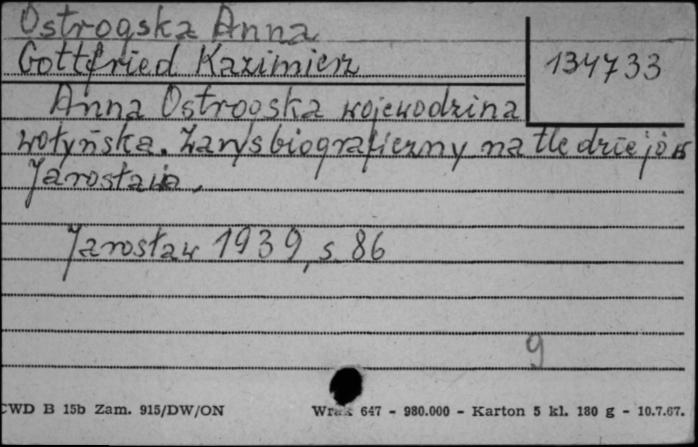 Ostrogska Anna
Gottfried Kazimierz
134733
Anna Ostrogska wojewodzina
wołyńska. Zarys biograficzny na tle dziejów
Jarosławia.
Jarosław 1939, s. 86
9
CWD B 15b Zam. 915/DW/ON
647 - 980.000 - Karton 5 kl. 180 g - 10.7.67.